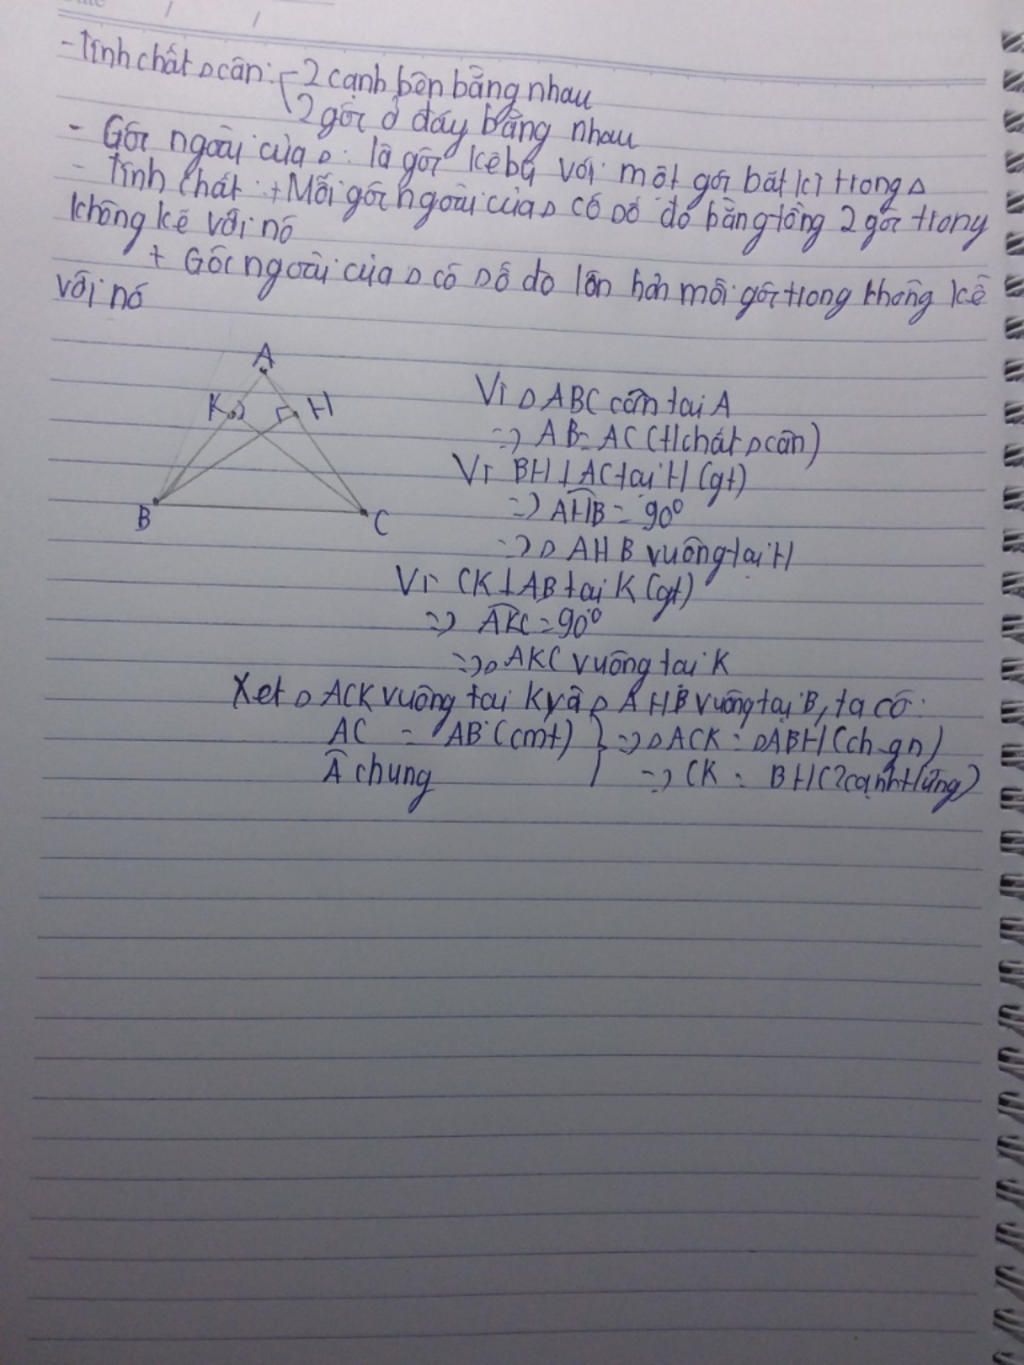 - Tính chất △ cân: - 2 cạnh bên bằng nhau
2 góc ở đáy bằng nhau
- Góc ngoài của △: là góc kề bù với một góc bất kì trong △
- Tính chất: + Mỗi góc ngoài của △ có số đo bằng tổng 2 góc trong
không kề với nó
+ Góc ngoài của △ có số đo lớn hơn mỗi góc trong không kề
với nó
A
K H
B C
Vì △ ABC cân tại A
=> AB = AC (t/chất △ cân)
Vì BH ⊥ AC tại H (gt)
=> AHB = 90°
=> △ AHB vuông tại H
Vì CK ⊥ AB tại K (gt)
=> AKC = 90°
=> △ AKC vuông tại K
Xét △ ACK vuông tại K và △ AHB vuông tại B, ta có:
AC = AB (cmt) } => △ACK = △ABH (ch-gn)
Â chung => CK = BH (2 cạnh t/ứng)